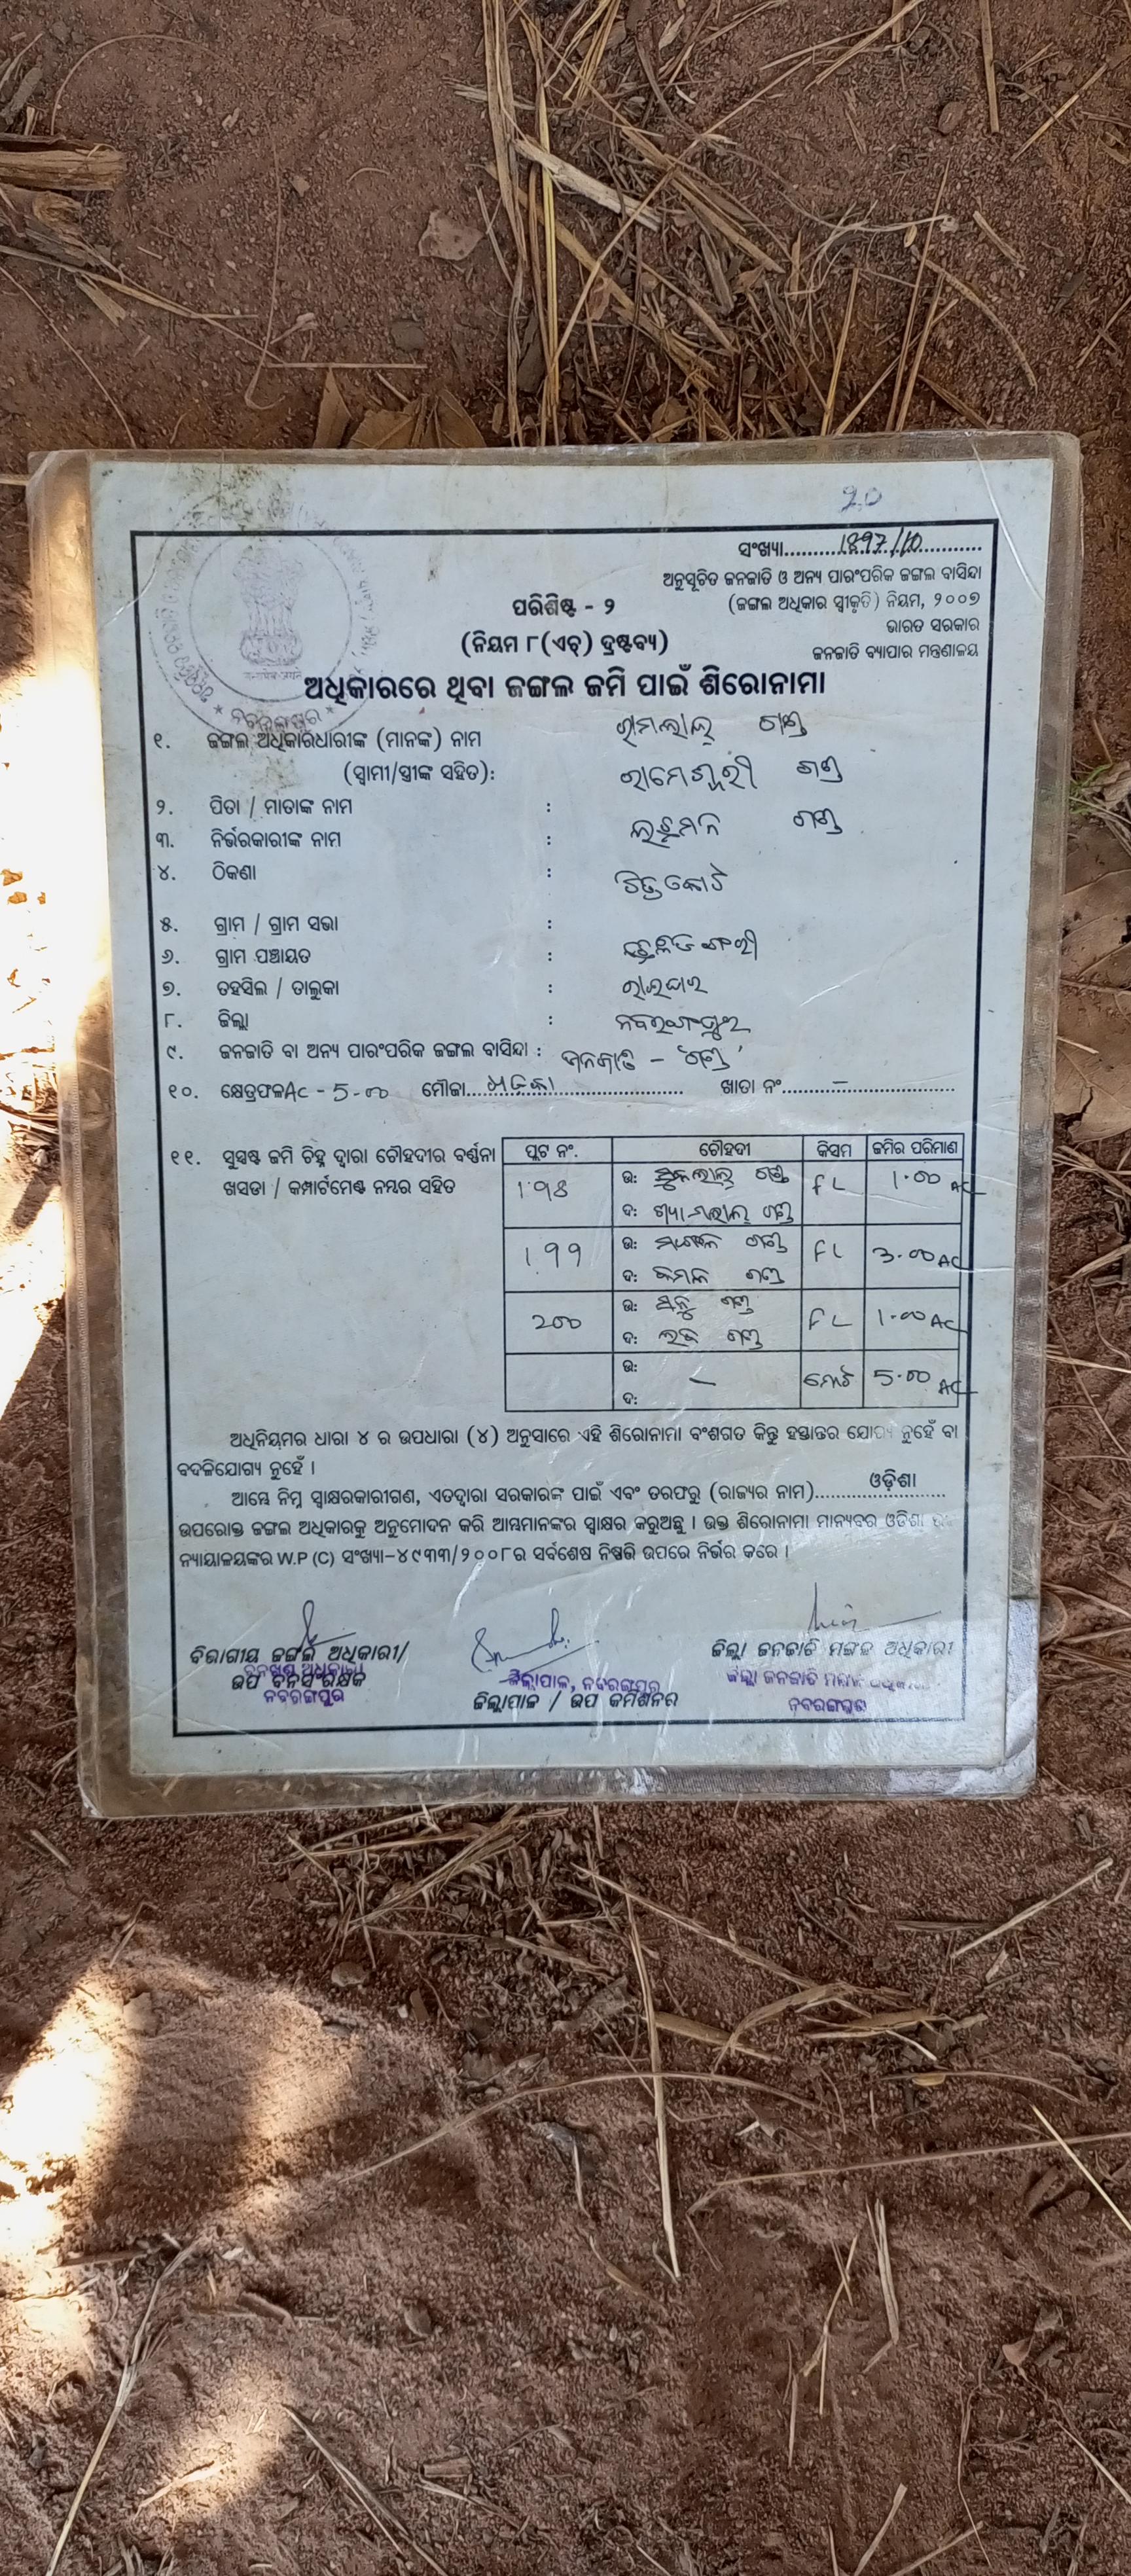 20
ସଂଖ୍ୟା.............1897/10.............
ଅନୁସୂଚିତ ଜନଜାତି ଓ ଅନ୍ୟ ପାରଂପରିକ ଜଙ୍ଗଲ ବାସିନ୍ଦା
(ଜଙ୍ଗଲ ଅଧିକାର ସ୍ୱୀକୃତି) ନିୟମ, ୨୦୦୭
ଭାରତ ସରକାର
ଜନଜାତି ବ୍ୟାପାର ମନ୍ତ୍ରଣାଳୟ
ପରିଶିଷ୍ଟ - ୨
(ନିୟମ ୮(ଏଚ୍) ଦ୍ରଷ୍ଟବ୍ୟ)
ଅଧିକାରରେ ଥିବା ଜଙ୍ଗଲ ଜମି ପାଇଁ ଶିରୋନାମା
୧. ଜଙ୍ଗଲ ଅଧିକାରଧାରୀଙ୍କ (ମାନଙ୍କ) ନାମ ରାମଲାଲ୍ ଗଣ୍ଡ
(ସ୍ୱାମୀ/ସ୍ତ୍ରୀଙ୍କ ସହିତ): ରାମେଶ୍ୱରୀ ଗଣ୍ଡ
୨. ପିତା / ମାତାଙ୍କ ନାମ : ଲଛମନ ଗଣ୍ଡ
୩. ନିର୍ଭରକାରୀଙ୍କ ନାମ :
୪. ଠିକଣା :
୫. ଗ୍ରାମ / ଗ୍ରାମ ସଭା :
୬. ଗ୍ରାମ ପଞ୍ଚାୟତ :
୭. ତହସିଲ / ତାଲୁକା : ରାଇଘର
୮. ଜିଲ୍ଲା : ନବରଂଗପୁର
୯. ଜନଜାତି ବା ଅନ୍ୟ ପାରଂପରିକ ଜଙ୍ଗଲ ବାସିନ୍ଦା : ଜନଜାତି - 'ଗଣ୍ଡ'
୧୦. କ୍ଷେତ୍ରଫଳ Ac - 5-00 ମୌଜା.................... ଖାତା ନଂ........–........
୧୧. ସୁସ୍ପଷ୍ଟ ଜମି ଚିହ୍ନ ଦ୍ୱାରା ଚୌହଦୀର ବର୍ଣ୍ଣନା
ଖସଡା / କମ୍ପାର୍ଟମେଣ୍ଟ ନମ୍ବର ସହିତ
ପ୍ଲଟ ନଂ. ଚୌହଦୀ କିସମ ଜମିର ପରିମାଣ
198 ଉ: ଶୁକଲାଲ୍ ଗଣ୍ଡ FL 1.00 AC
ଦ: ଶ୍ୟାମଲାଲ୍ ଗଣ୍ଡ
199 ଉ: ମଙ୍ଗଳ ଗଣ୍ଡ FL 3.00 AC
ଦ: କମଳ ଗଣ୍ଡ
200 ଉ: ଗଣ୍ଡ FL 1.00 AC
ଦ: ଗଣ୍ଡ
ଉ: – ମୋଟ 5.00 AC
ଦ:
ଅଧିନିୟମର ଧାରା ୪ ର ଉପଧାରା (୪) ଅନୁସାରେ ଏହି ଶିରୋନାମା ବଂଶଗତ କିନ୍ତୁ ହସ୍ତାନ୍ତର ଯୋଗ୍ୟ ନୁହେଁ ବା
ବଦଳିଯୋଗ୍ୟ ନୁହେଁ ।
ଆମ୍ଭେ ନିମ୍ନ ସ୍ୱାକ୍ଷରକାରୀଗଣ, ଏତଦ୍ୱାରା ସରକାରଙ୍କ ପାଇଁ ଏବଂ ତରଫରୁ (ରାଜ୍ୟର ନାମ)........ଓଡ଼ିଶା........
ଉପରୋକ୍ତ ଜଙ୍ଗଲ ଅଧିକାରକୁ ଅନୁମୋଦନ କରି ଆମ୍ଭମାନଙ୍କର ସ୍ୱାକ୍ଷର କରୁଅଛୁ । ଉକ୍ତ ଶିରୋନାମା ମାନ୍ୟବର ଓଡିଶା
ନ୍ୟାୟାଳୟଙ୍କର W.P (C) ସଂଖ୍ୟା-୪୯୩୩/୨୦୦୮ର ସର୍ବଶେଷ ନିଷ୍ପତ୍ତି ଉପରେ ନିର୍ଭର କରେ ।
ବିଭାଗୀୟ ଜଙ୍ଗଲ ଅଧିକାରୀ/
ଉପ ବନସଂରକ୍ଷକ
ବନଖଣ୍ଡ ଅଧିକାରୀ
ନବରଙ୍ଗପୁର
ଜିଲ୍ଲାପାଳ, ନବରଙ୍ଗପୁର
ଜିଲ୍ଲାପାଳ / ଉପ କମିଶନର
ଜିଲ୍ଲା ଜନଜାତି ମଙ୍ଗଳ ଅଧିକାରୀ
ଜିଲ୍ଲା ଜନଜାତି ମଙ୍ଗଳ ଅଧିକାରୀ
ନବରଙ୍ଗପୁର